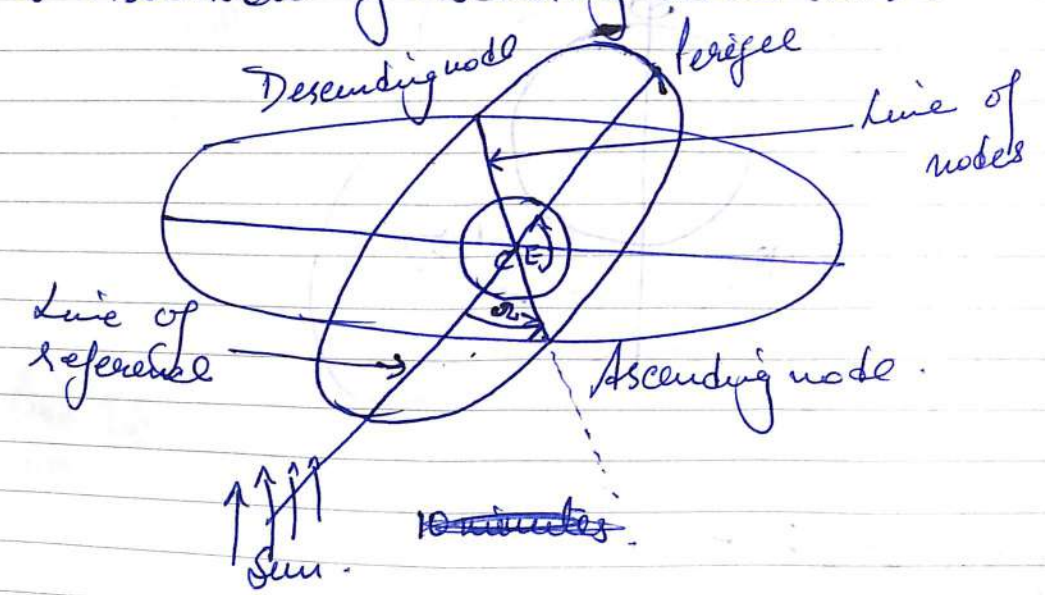 Descending node
Perigee
Line of
nodes
C E
Ω
Line of
reference
Ascending node.
10 minutes.
Sun.